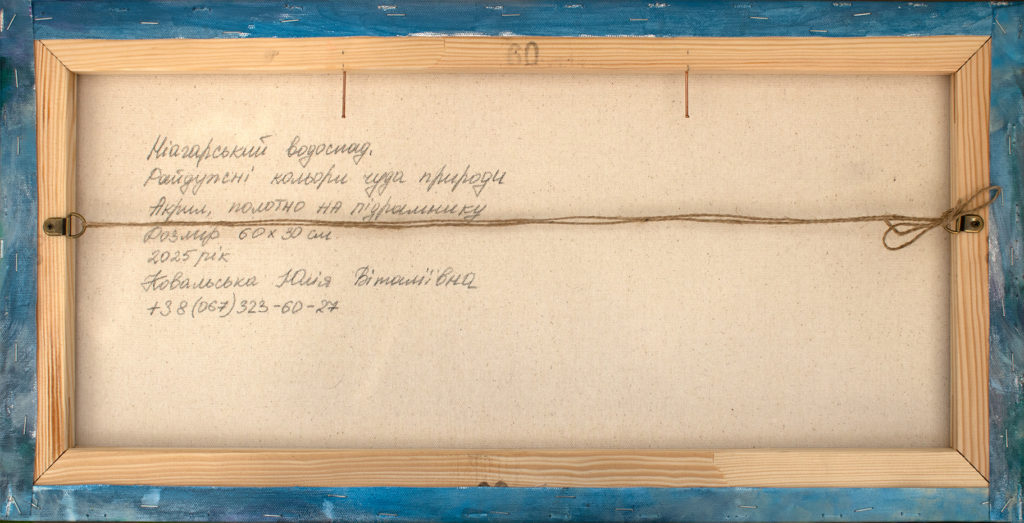 60
Ніагарський водоспад.
Райдужні кольори чуда природи
Акрил, полотно на підрамнику
Розмір 60 х 30 см
2025 рік
Ковальська Юлія Віталіївна
+38(067)323-60-27